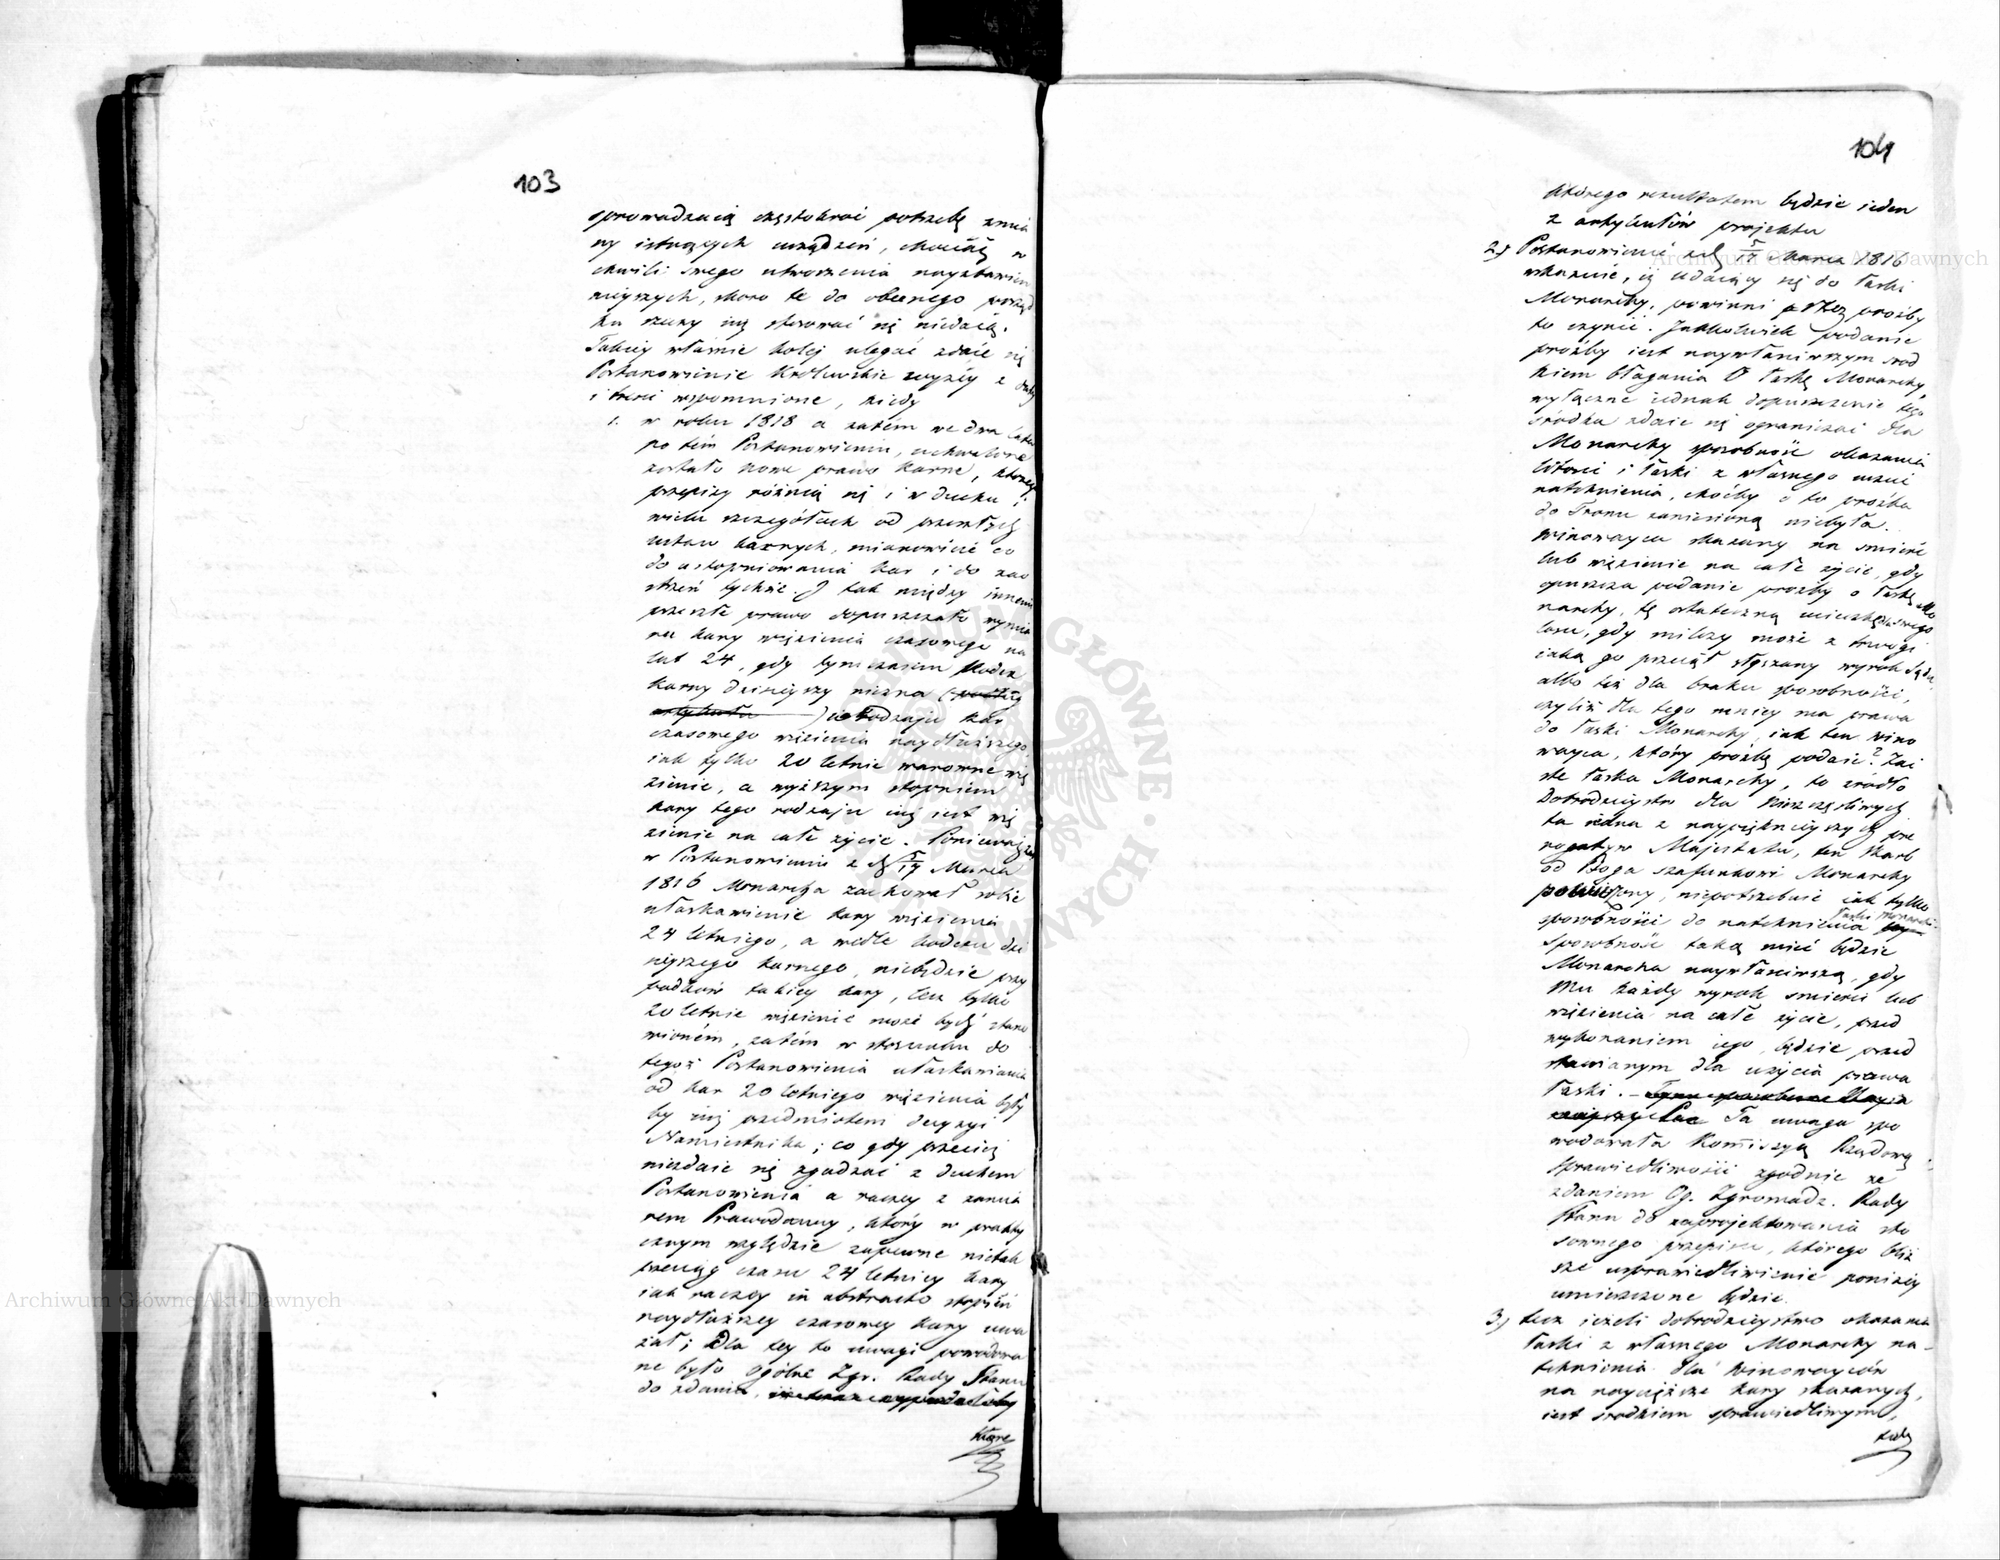 103
sprowadzaią częstokroć potrzebę zmia
ny istnących urządzeń, chociaż w
chwili swego utworzenia nayzbawien
nieyszych, skoro te do obecnego porząd
ku rzeczy iuż stosować się niedaią.
Takiey właśnie kolej ulegać zdaie się
Postanowienie Królewskie wyżéy z daty
i treści wspomnione, kiedy
1. w roku 1818 a zatem we dwa lata
po tém Postanowieniu, uchwalone
zostało nowe prawo karne, którego
przepisy różnią się i w duchu i
wielu szczegółach od przeszłych
ustaw karnych, mianowicie co
do ustopniowania kar i do zao
strzeń tychże. I tak między innemi
przeszłe prawo dopuszczało wymia
ru kary więzienia czasowego na
lat 24, gdy tymczasem Kodex
karny dzisieyszy niezna (podług
artykułu ) w rodzaju kar
czasowego więzienia naydłuższego,
iak tylko 20 letnie warowne wię
zienie, a wyższym stopniem
kary tego rodzaju iuż iest wię
zienie na całe życie. Ponieważ zaś
w Postanowieniu z d. 5/17 Marca
1816 Monarcha zachował sobie
ułaskawienie kary więzienia
24 letniego, a wedle kodexu dzi
sieyszego karnego, niebędzie przy
padków takiey kary, lecz tylko
20 letnie więzienie może bydź stano
wioném, zatém w stosunku do
tegoż Postanowienia ułaskawiania
od kar 20 letniego więzienia były
by iuż przedmiotem decyzyi
Namiestnika; co gdy przecież
niezdaie się zgadzać z duchem
Postanowienia a raczey z zamia
rem Prawodawcy, który w prakty
cznym względzie zapewne nietak
przeciąg czasu 24 letniey kary
iak raczey in abstracto stopień
naydłuższey czasowey kary uwa
żał; Dla tey to uwagi powodowa
ne było Ogólne Zgr. Rady Stanu
do zdania,
którego
104
którego rezultatem będzie ieden
z artykułów projektu
2) Postanowienie z d. 5/17 Marca 1816
wskazuie, iż udaiący się do łaski
Monarchy, powinni przez prośby
to czynić. Jakkolwiek podanie
prośby iest naywłaściwszym środ
kiem błagania o łaskę Monarchy,
wyłączne iednak dopuszczenie tego
środka zdaie się ograniczać dla
Monarchy sposobność okazania
litości i łaski z własnego uczuć
natchnienia, choćby o to prośba
do Tronu zaniesioną niebyła.
Winowayca skazany na śmierć
lub więzienie na całe życie, gdy
opuszcza podanie prośby o łaskę Mo
narchy, tę ostateczną ucieczkę dla swego
losu, gdy milczy może z trwogi
iaką go przeiął słyszany wyrok Sądu,
albo też dla braku sposobności,
czyliż dla tego mniey ma prawa
do łaski Monarchy, iak ten wino
wayca, który prośbę podaie? Zai
ste łaska Monarchy, to źródło
Dobrodzieystw dla nieszczęśliwych
ta iedna z naypiękniejszych pre
rogatyw Majestatu, ten skarb
od Boga szafunkowi Monarchy
powierzony, niepotrzebuie iak tylko
sposobności do natchnienia
łaski Monarchi
sposobność taką mieć będzie
Monarcha naywłaściwszą, gdy
Mu każdy wyrok śmierci lub
więzienia na całe życie, przed
wykonaniem iego, będzie przed
stawianym dla użycia prawa
łaski.
Ta uwaga spo
wodowała Kommissyą Rządową
Sprawiedliwości zgodnie ze
zdaniem Og. Zgromadz. Rady
Stanu do zaprojektowania sto
sownego przepisu, którego bliż
sze usprawiedliwienie poniżéy
umieszczone będzie.
3) Lecz ieżeli dobrodzieystwo okazania
łaski z własnego Monarchy na-
tchnienia dla Winowayców
na naycięższe kary skazanych,
iest środkiem sprawiedliwym,